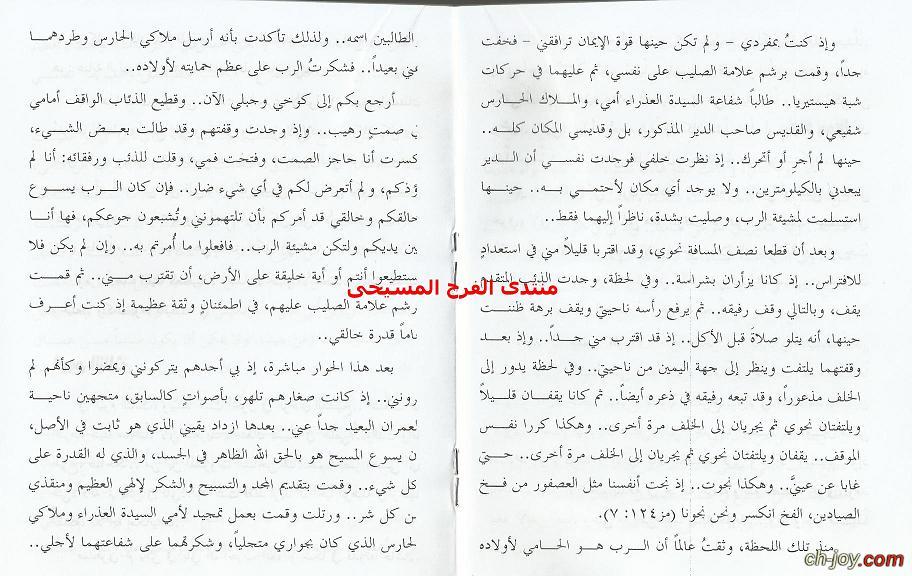 وإذ كنتُ بمفردي – ولم تكن حينها قوة الإيمان ترافقني – فخفت
جداً، وقمت برشم علامة الصليب على نفسي، ثم عليهما في حركات
شبة هيستيريا.. طالباً شفاعة السيدة العذراء أمي، والملاك الحارس
شفيعي، والقديس صاحب الدير المذكور، بل وقديسي المكان كله..
حينها لم أجرِ أو أتحرك.. إذ نظرت خلفي فوجدت نفسي أن الدير
يبعدني بالكيلومترين.. ولا يوجد أي مكان لأحتمي به.. حينها
استسلمت لمشيئة الرب، وصليت بشدة، ناظراً إليهما فقط..
وبعد أن قطعا نصف المسافة نحوي، وقد اقتربا قليلاً مني في استعدادٍ
للافتراس.. إذ كانا يزأران بشراسة.. وفي لحظة، وجدت الذئب المتقدم
يقف، وبالتالي وقف رفيقه.. ثم يرفع رأسه ناحيتي ويقف برهة ظننت
حينها، أنه يتلو صلاةَ قبل الأكل.. إذ قد اقترب مني جداً.. وإذ بعد
وقفتهما يلتفت وينظر إلى جهة اليمين من ناحيتي.. وفي لحظة يدور إلى
الخلف مذعوراً، وقد تبعه رفيقه في ذعره أيضاً.. ثم كانا يقفان قليلاً
ويلتفتان نحوي ثم يجريان إلى الخلف مرة أخرى.. وهكذا كررا نفس
الموقف.. يقفان ويلتفتان نحوي ثم يجريان إلى الخلف مرة أخرى.. حتى
غابا عن عينيَّ.. وهكذا نجوت.. إذ نجت أنفسنا مثل العصفور من فخ
الصيادين، الفخ انكسر ونحن نجونا (مز١٢٤: ٧).
منذ تلك اللحظة، وثقتُ عالماً أن الرب هو الحامي لأولاده
الطالبين اسمه.. ولذلك تأكدت بأنه أرسل ملاكي الحارس وطردهما
عني بعيداً.. فشكرتُ الرب على عظم حمايته لأولاده..
أرجع بكم إلى كوخي وجبلي الآن.. وقطيع الذئاب الواقف أمامي
في صمتٍ رهيب.. وإذ وجدت وقفتهم وقد طالت بعض الشيء،
كسرت أنا حاجز الصمت، وفتحت فمي، وقلت للذئب ورفقائه: أنا لم
أؤذكم، ولم أتعرض لكم في أي شيء ضار.. فإن كان الرب يسوع
خالقكم وخالقي قد أمركم بأن تلتهمونني وتُشبعون جوعكم، فها أنا
بين يديكم ولتكن مشيئة الرب.. فافعلوا ما أُمرتم به.. وإن لم يكن فلا
تستطيعوا أنتم أو أية خليقة على الأرض، أن تقترب مني.. ثم قمت
برشم علامة الصليب عليهم، في اطمئنانٍ وثقة عظيمة إذ كنت أعرف
تماماً قدرة خالقي..
بعد هذا الحوار مباشرة، إذ بي أجدهم يتركونني ويمضوا وكأنهم لم
يرونني.. إذ كانت صغارهم تلهو، بأصواتٍ كالسابق، متجهين ناحية
العمران البعيد جداً عني.. بعدها ازداد يقيني الذي هو ثابت في الأصل،
أن يسوع المسيح هو بالحق الله الظاهر في الجسد، والذي له القدرة على
كل شيء.. وقمت بتقديم المجد والتسبيح والشكر لإلهي العظيم ومنقذي
من كل شر.. ورتلت وقمت بعمل تمجيد لأمي السيدة العذراء وملاكي
الحارس الذي كان بجواري متجلياً، وشكرهُما على شفاعتهما لأجلي..
منتدى الفرح المسيحى
ch-joy.com